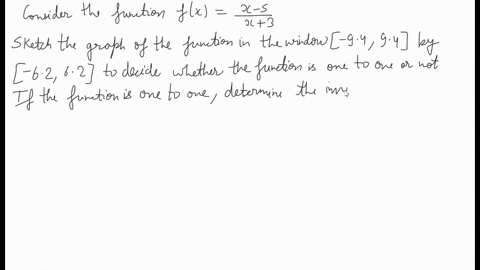 Consider the function f(x) = \frac{x-5}{x+3}
Sketch the graph of the function in the window [-9.4, 9.4] by
[-6.2, 6.2] to decide whether the function is one to one or not
If the function is one to one, determine the inv